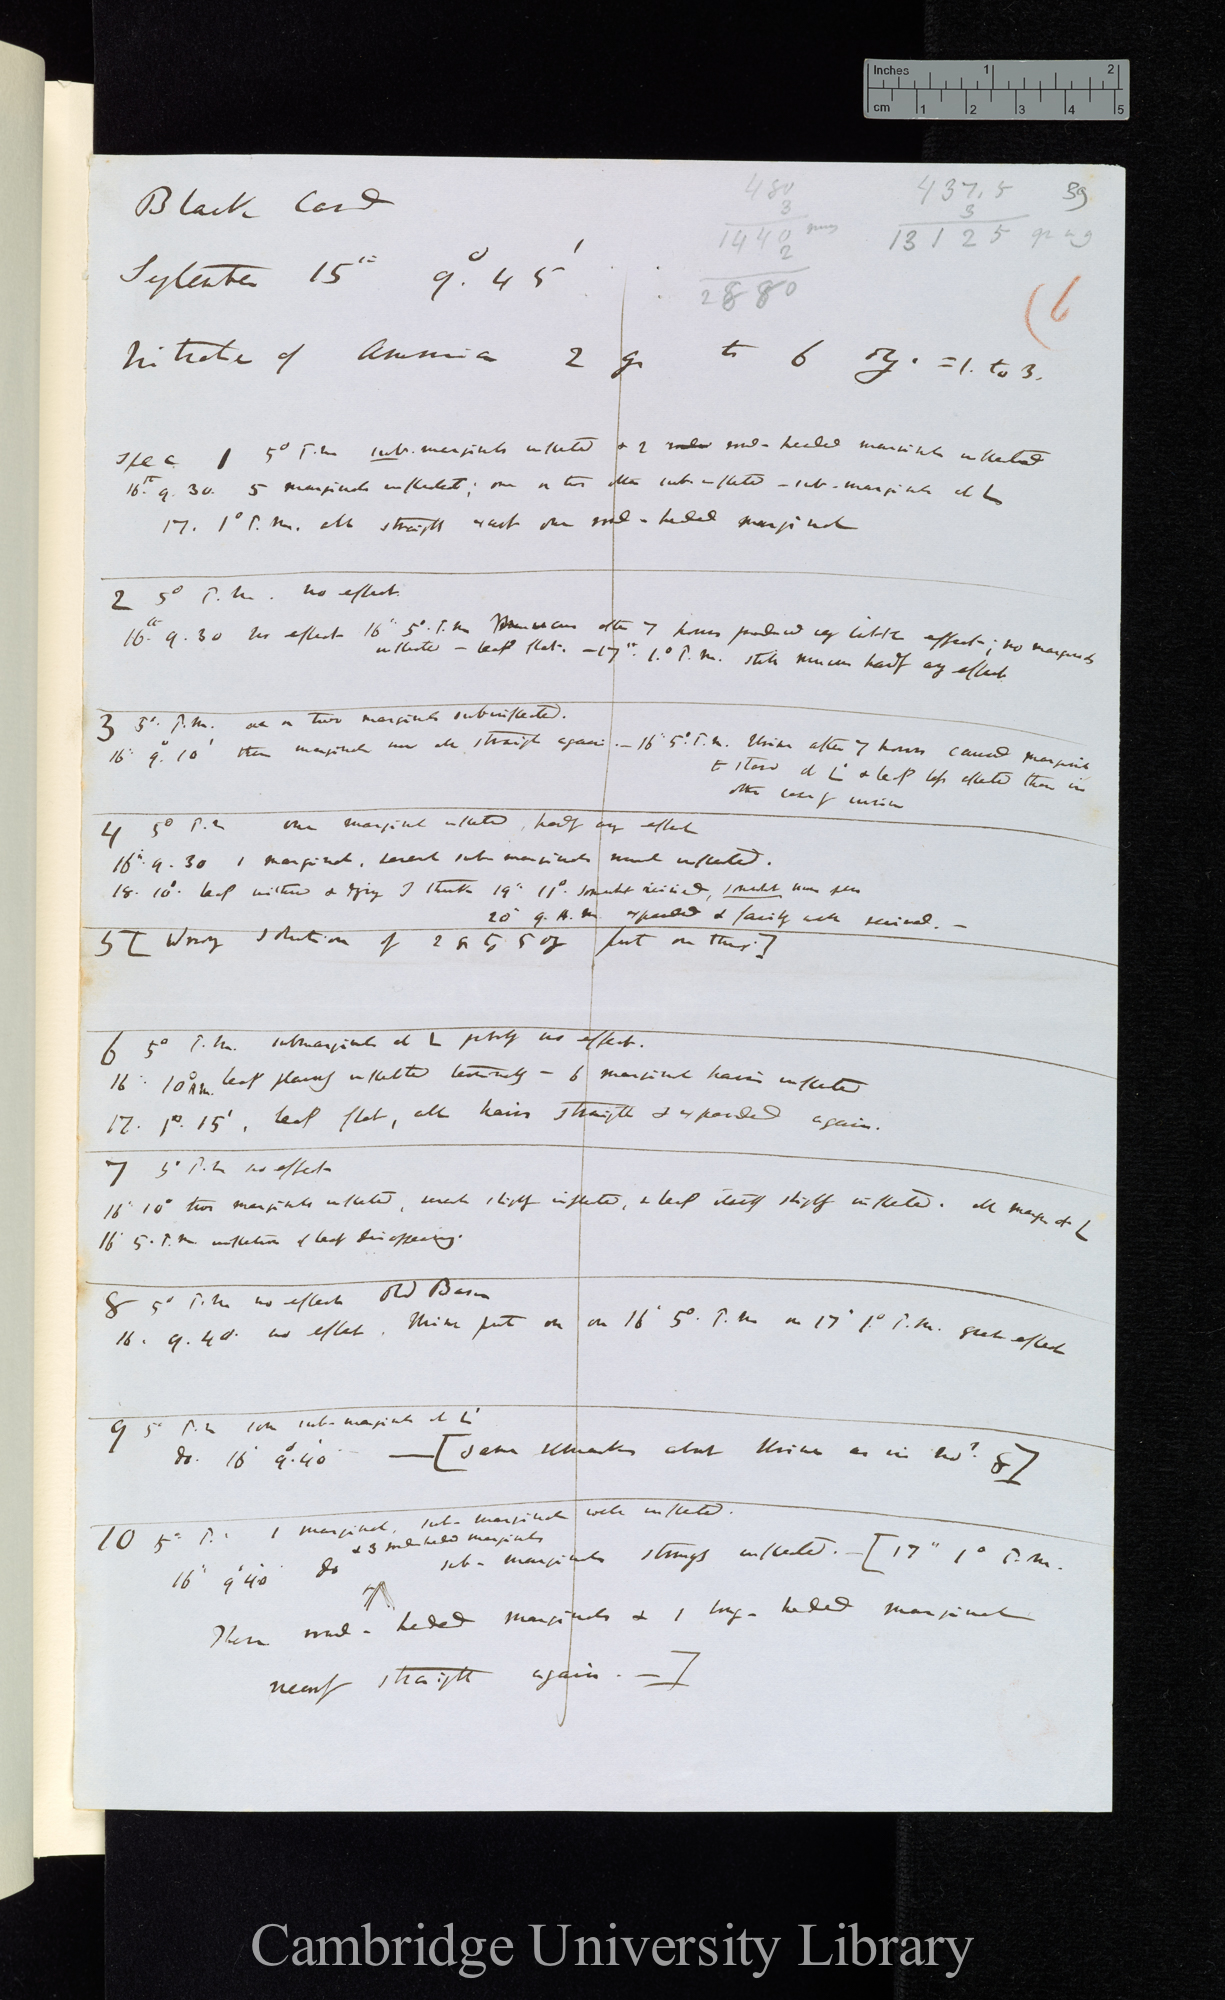 Inches 1 2
cm 1 2 3 4 5
480
3
1440
2
2880
437.5
3
13125
39
(6
Black Card
September 15th 9°. 45'
Nitrate of Ammonia 2 gr to 6 oz. = 1. to 3.
Spec 1 5° P.m sub-marginals inflected & 2 round-headed marginals inflected
16th 9. 30. 5 marginals inflected; one or two other sub inflected – sub-marginals at L
17. 1° P.m. all straight except one round-headed marginal
2 5° P.m. no effect.
16th 9.30 no effect 16th 5°. P.m after 7 hours produced very little effect; no marginals
inflected – leaf flat. – 17th 1.° P.m. still hardly any effect
3 5°. P.m. one or two marginals subinflected.
16th 9° 10' these marginals now all straight again. – 16th 5° P.m. Urine after 7 hours caused marginals
to stand at L & leaf less affected than in
other case of urine
4 5° P.m one marginal inflected, hardly any effect
16th 9. 30 1 marginal, several sub-marginals much inflected.
18. 10°. leaf withered & dying I think 19th 11°. somewhat revived, somewhat
20th 9. A.m. expanded & fairly well revived. –
5 [Wrong solution of 2 gr to 5 oz put on these.]
6 5° P.m. submarginals at L pretty no effect.
16th 10° A.m. leaf plainly inflected laterally – 6 marginal hairs inflected
17. 1°. 15', leaf flat, all hairs straight & expanded again.
7 5° P.m no effect
16th 10° two marginals inflected, several slightly inflected, & leaf itself slightly inflected. all margin at L
16th 5. P.m inflection of leaf disappearing.
8 5° P.m no effect Old Basin
16. 9. 40. no effect. Urine put on on 16th 5°. P.m on 17th 1.° P.m. great effect
9 5° P.m some sub-marginals at L
do. 16th 9°. 40' — [Same remarks about Urine as in No. 8]
10 5° P. 1 marginal, sub-marginals well inflected.
& 3 round-headed marginals
16th 9°40' do sub-marginals strongly inflected. – [17th 1° P.m.
These round-headed marginals & 1 long-headed marginal
nearly straight again. –]
Cambridge University Library